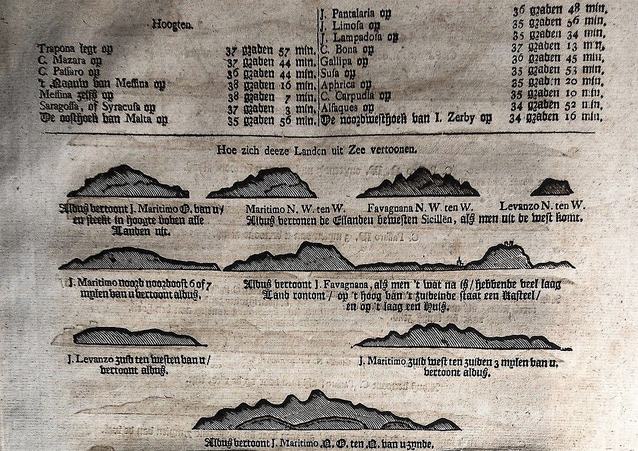 Hoogten.
Trapona legt op 37 graden 57 min.
C. Mazara op 37 graden 44 min.
C. Passaro op 36 graden 44 min.
't Naauw van Messina op 38 graden 16 min.
Messina zelfs op 38 graden 7 min.
Saragossa, of Syracusa op 37 graden 3 min.
De oosthoek van Malta op 35 graden 56 min.
J. Pantalaria op 36 graden 48 min.
J. Limosa op 35 graden 56 min.
J. Lampadosa op 35 graden 34 min.
C. Bona op 37 graden 13 min.
Gallipa op 36 graden 45 min.
Susa op 35 graden 53 min.
Aphrica op 35 graden 20 min.
C. Carpudia op 35 graden 10 min.
Alfaques op 34 graden 52 min.
De noordwesthoek van I. Zerby op 34 graden 16 min.
Hoe zich deeze Landen uit Zee vertoonen.
Aldus vertoont J. Maritimo O. van u/
en steekt in hoogte boven alle
Landen uit.
Maritimo N. W. ten W.
Favagnana N W. ten W.
Levanzo N. ten W.
Aldus vertonen de Eilanden bewesten Sicilien, als men uit de west komt.
J. Maritimo noord noordoost 6 of 7
mylen van u vertoont aldus,
Aldus vertoont J. Favagnana, als men 't wat na is/ hebbende veel laag
Land rontom/ op 't hoog van 't zuideinde staat een Kasteel/
en op 't laag een Huis.
J. Levanzo zuid ten westen van u/
vertoont aldus.
J. Maritimo zuid west ten zuiden 3 mylen van u,
vertoont aldus.
Aldus vertoont J. Maritimo N. O. ten N. van u zynde.